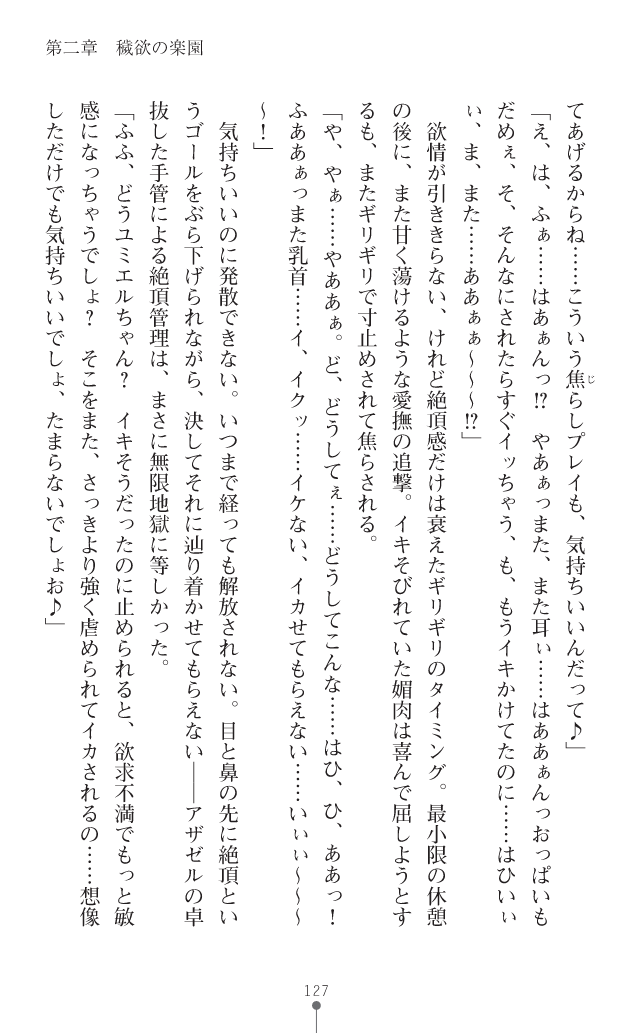 第二章　穢欲の楽園
てあげるからね……こういう焦らしプレイも、気持ちいいんだって♪」
じ
「え、は、ふぁ……はあぁんっ!?　やあぁっまた、また耳ぃ……はああぁんっおっぱいも
だめぇ、そ、そんなにされたらすぐイッちゃう、も、もうイキかけてたのに……はひいぃ
ぃ、ま、また……ああぁぁ～～～!?」
　欲情が引ききらない、けれど絶頂感だけは衰えたギリギリのタイミング。最小限の休憩
の後に、また甘く蕩けるような愛撫の追撃。イキそびれていた媚肉は喜んで屈しようとす
るも、またギリギリで寸止めされて焦らされる。
「や、やぁ……やああぁ。ど、どうしてぇ……どうしてこんな……はひ、ひ、ああっ！
ふああぁっまた乳首……イ、イクッ……イケない、イカせてもらえない……いぃぃ～～～
～！」
　気持ちいいのに発散できない。いつまで経っても解放されない。目と鼻の先に絶頂とい
うゴールをぶら下げられながら、決してそれに辿り着かせてもらえない――アザゼルの卓
抜した手管による絶頂管理は、まさに無限地獄に等しかった。
「ふふ、どうユミエルちゃん？　イキそうだったのに止められると、欲求不満でもっと敏
感になっちゃうでしょ？　そこをまた、さっきより強く虐められてイカされるの……想像
しただけでも気持ちいいでしょ、たまらないでしょお♪」
127